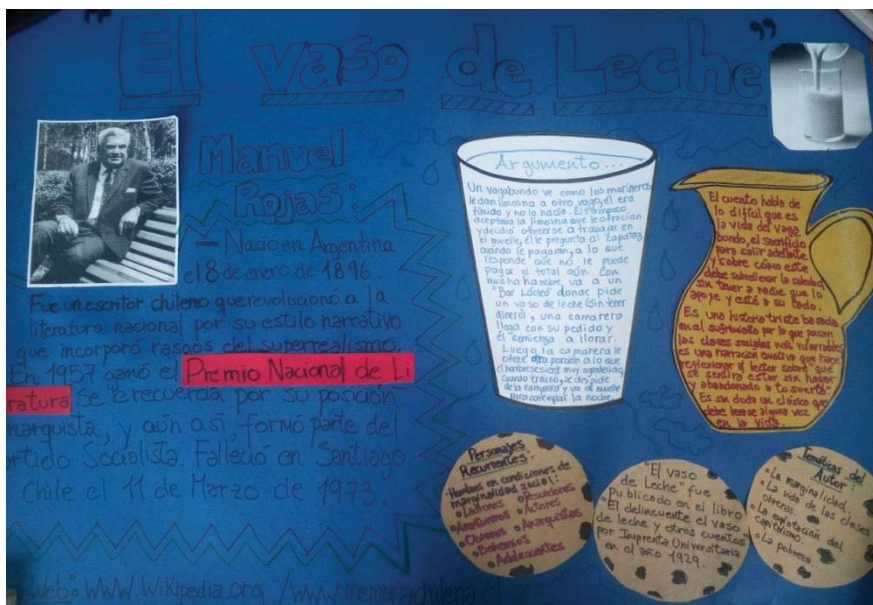 "El vaso de Leche"
Manuel
Rojas:
– Nació en Argentina
el 8 de enero de 1896.
Fue un escritor chileno que revolucionó a la
literatura nacional por su estilo narrativo
que incorporó rasgos del superrealismo.
En 1957 ganó el Premio Nacional de Li
ratura. Se le recuerda por su posición
narquista, y aún así, formó parte del
rtido Socialista. Falleció en Santiago
Chile el 11 de Marzo de 1973.
Web: WWW.Wikipedia.org /www.memoriachilena.cl
Argumento...
Un vagabundo ve como los marineros
le dan limosna a otro vago, él era
tímido y no lo hacía. El tampoco
aceptaba la limosna que le ofrecían
y decidió ofrecerse a trabajar en
el muelle, él le pregunta al capataz
cuándo le pagarán, a lo que
responde que no le puede
pagar el total aún. Con
mucha hambre, va a un
"Bar Lácteo" donde pide
un vaso de leche (sin tener
dinero), una camarera
llega con su pedido y
él comienza a llorar.
Luego la camarera le
ofrece otra porsión a lo que
el hombre se siente muy agradecido,
cuando termina, se despide
de la camarera y va al muelle
para contemplar la noche.
El cuento habla de
lo difícil que es
la vida del vaga
bundo, el sacrificio
para salir adelante
y sobre cómo este
debe sobrellevar la soledad,
sin tener a nadie que lo
apoye y esté a su lado.
Es una historia triste basada
en el sufrimiento por lo que pasan
las clases sociales más vulnerables,
es una narración emotiva que hace
reflexionar al lector sobre que
se sentiría estar sin hogar
y abandonado a tu suerte.
Es sin duda un clásico que
debe leerse alguna vez
en la vida.
Personajes
Recurrentes:
-Hombres en condiciones de
marginalidad social:
• Ladrones • Pescadores
• Aventureros • Actores
• Obreros • Anarquistas
• Bohemios
• Adolescentes
"El vaso
de Leche" fue
Publicado en el libro
"El delincuente el vaso
de leche y otros cuentos
por Imprenta Universitaria
en el año 1929.
Temáticas del
Autor:
• La marginalidad.
• La vida de las clases
obreras.
• La explotación del
capitalismo.
• La pobreza